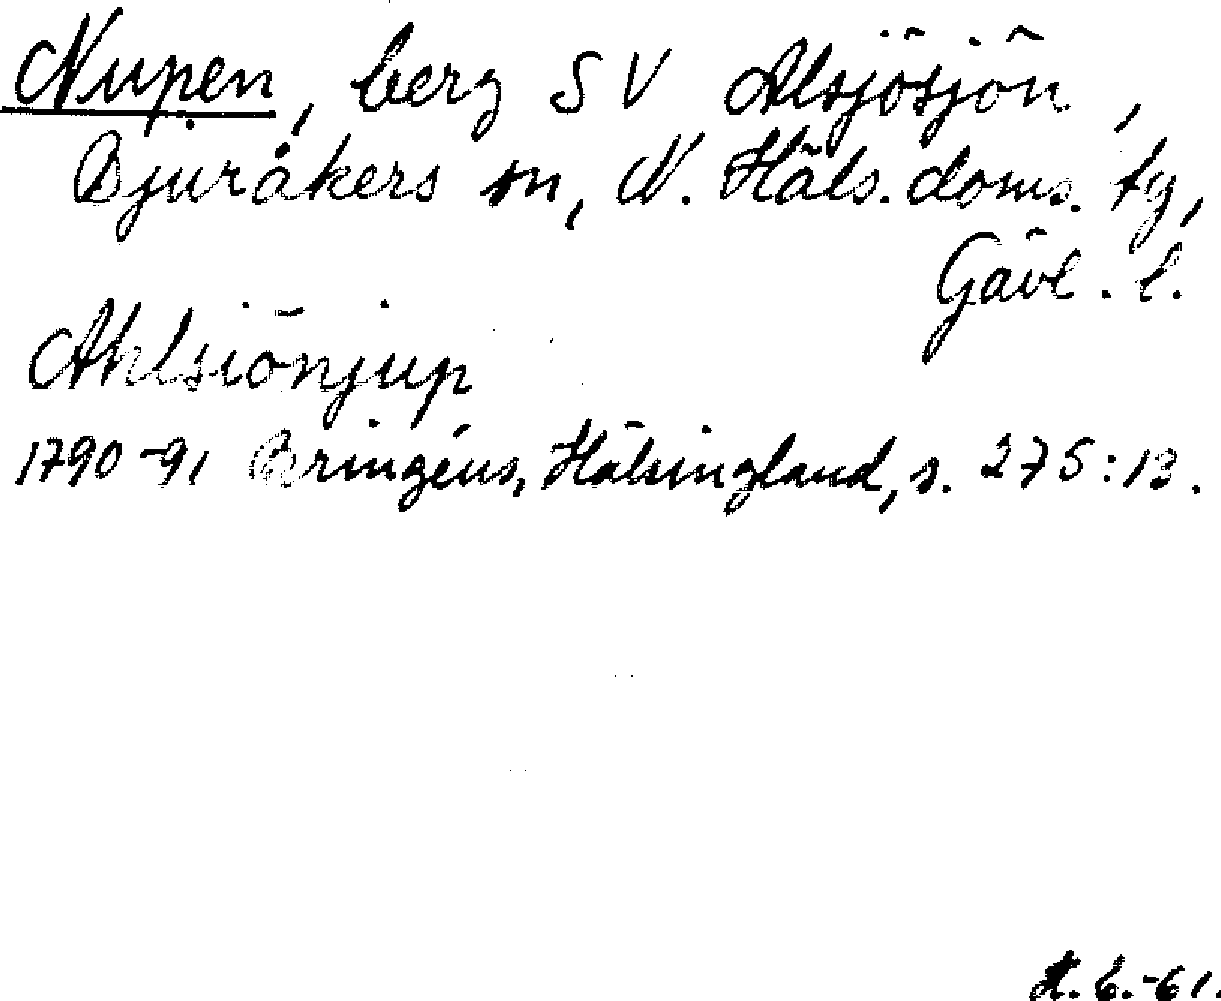 Nupen, berg SV Alsjösjön,
Bjuråkers sn, N. Häls. doms. tg,
Gävl. l.
Ahlsiönjup
1790-91 Bringéus, Hälsingland, s. 275:13.
6.-61.